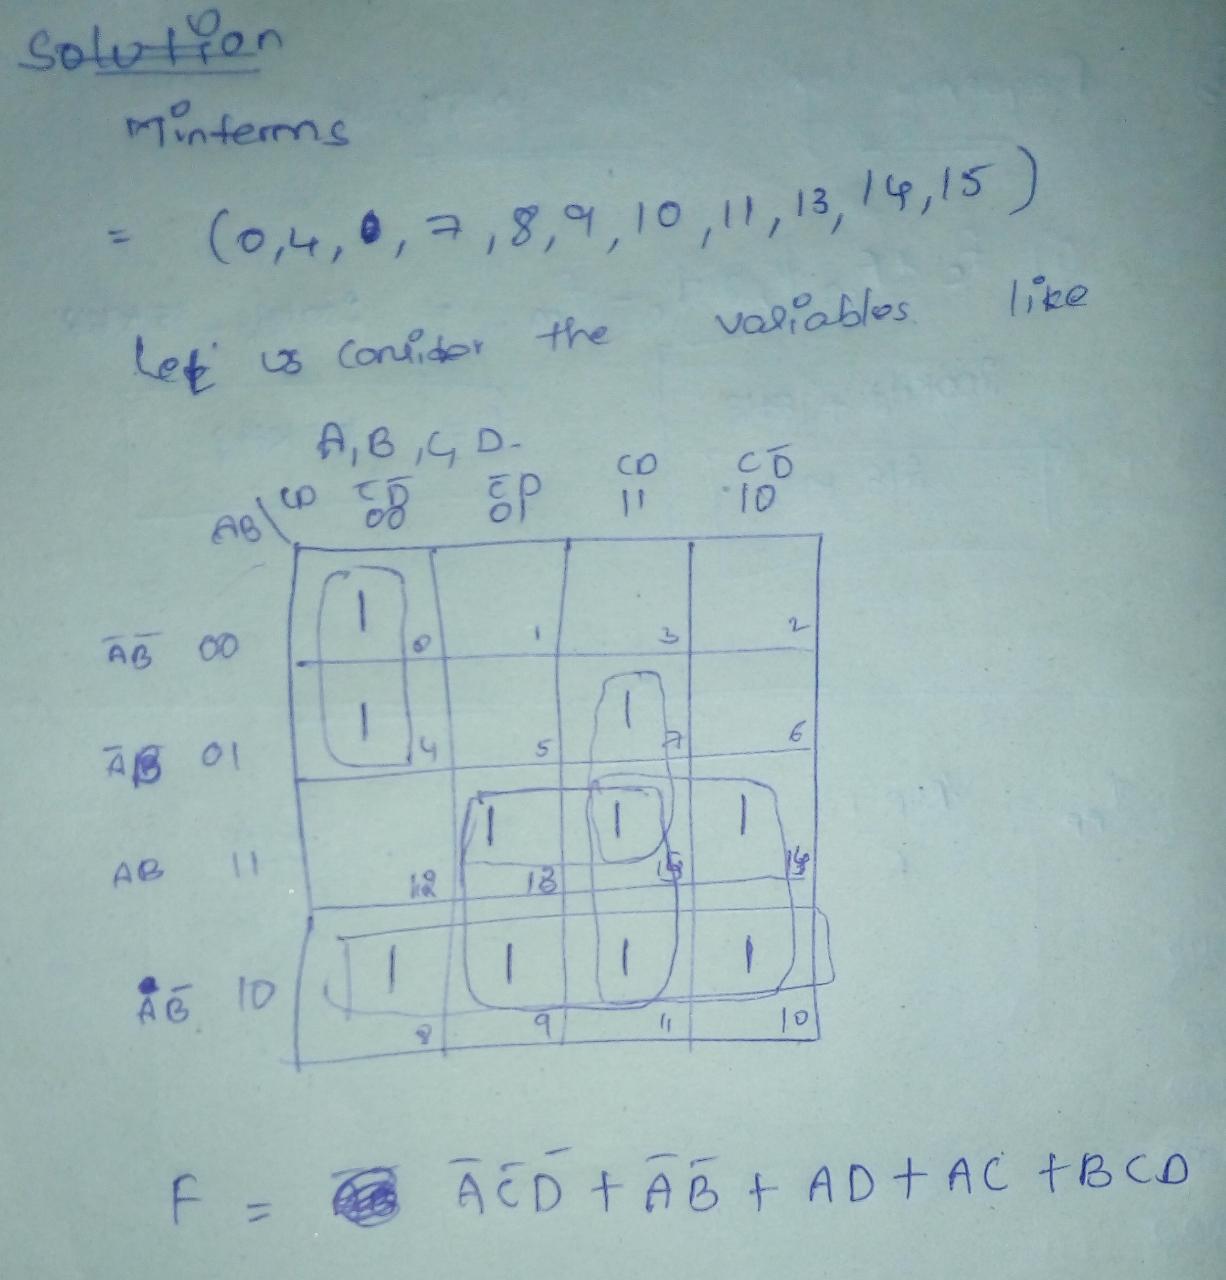 Solution
Minterms
= (0,4, , 7,8,9,10,11,13,14,15)
Let us consider the variables like
A,B,C,D.
AB\CD C̅D̅ C̅D CD CD̅
00 01 11 10
A̅B̅ 00 1 0 1 3 2
A̅B 01 1 4 5 1 7 6
AB 11 12 1 13 1 15 1 14
AB̅ 10 1 8 1 9 1 11 1 10
F = A̅C̅D̅ + A̅B̅ + AD + AC + BCD